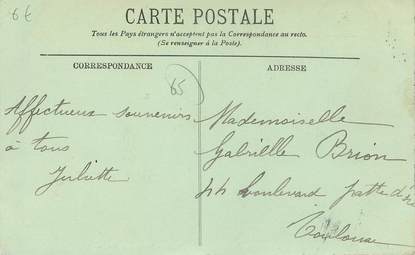 6€
CARTE POSTALE
Tous les Pays étrangers n'acceptent pas la Correspondance au recto.
(Se renseigner à la Poste).
CORRESPONDANCE
65
ADRESSE
Affectueux souvenirs
à tous
Juliette
Mademoiselle
Gabrielle Brion
44 boulevard patte d'oie
Toulouse